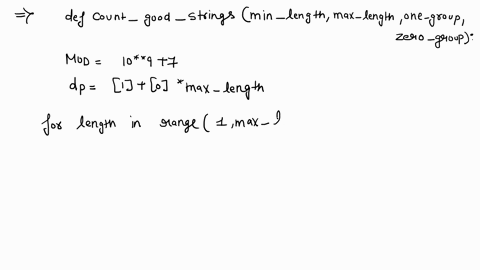 => def count_good_strings (min_length, max_length, one-group,
zero_group):
MOD = 10**9 +7
dp = [1] + [0] * max_length
for length in range ( 1, max_)